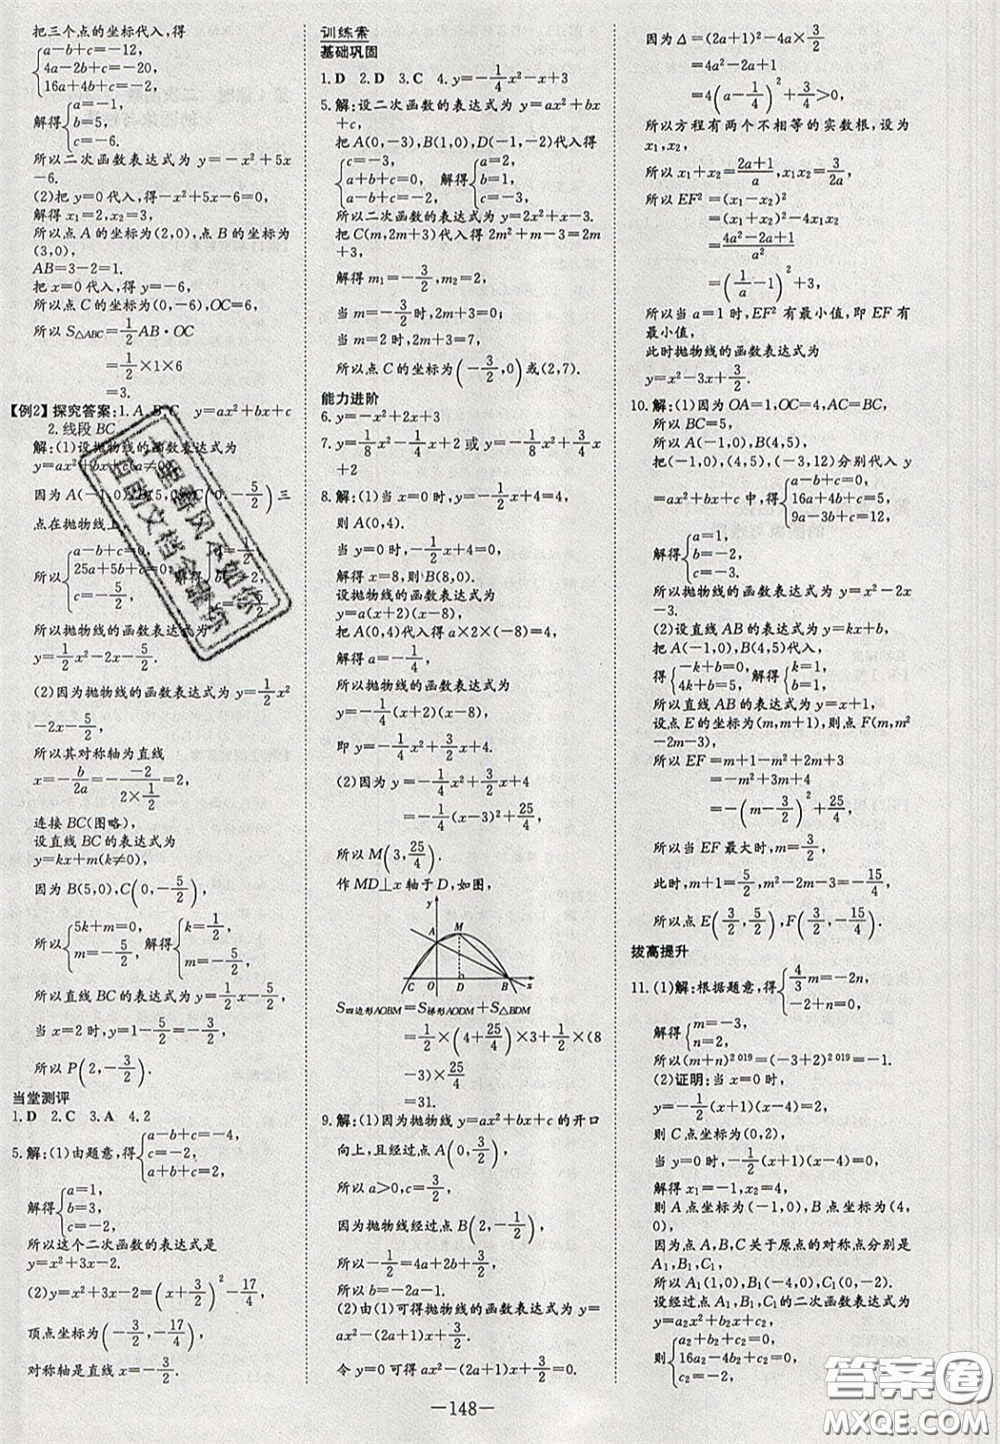 把三个点的坐标代入,得
{a-b+c=-12,
4a-2b+c=-20,
16a+4b+c=-2,
解得{a=-1,
b=5,
c=-6.
所以二次函数表达式为 y=-x²+5x
-6.
(2)把 y=0代入,得-x²+5x-6=0,
解得 x₁=2,x₂=3,
所以点 A 的坐标为(2,0),点 B 的坐标为
(3,0),
AB=3-2=1.
把 x=0代入得 y=-6,
所以点 C 的坐标为(0,-6),OC=6,
所以 S△ABC=1/2AB·OC
=1/2×1×6
=3.
【例2】探究答案:1.A、B、C y=ax²+bx+c
2.线段 BC
解:(1)设抛物线的函数表达式为
y=ax²+bx+c(a≠0),
因为 A(-1,0),B(5,0),C(0,-5/2)三
点在抛物线上,
所以{a-b+c=0,
25a+5b+c=0,
c=-5/2,
所以抛物线的函数表达式为
y=1/2x²-2x-5/2.
(2)因为抛物线的函数表达式为 y=1/2x²
-2x-5/2,
所以其对称轴为直线
x=-b/2a=-(-2)/(2×1/2)=2,
连接 BC(图略),
设直线 BC 的表达式为
y=kx+m(k≠0),
因为 B(5,0),C(0,-5/2),
所以{5k+m=0,
m=-5/2, 解得{k=1/2,
m=-5/2,
所以直线 BC 的表达式为 y=1/2x-5/2,
当 x=2时,y=1-5/2=-3/2,
所以 P(2,-3/2).
当堂测评
1.D 2.C 3.A 4.2
5.解:(1)由题意,得{a-b+c=-4,
c=-2,
a+b+c=2,
解得{a=1,
b=3,
c=-2,
所以这个二次函数的表达式是
y=x²+3x-2.
(2)y=x²+3x-2=(x+3/2)²-17/4,
顶点坐标为(-3/2,-17/4),
对称轴是直线 x=-3/2.
训练案
基础巩固
1.D 2.D 3.C 4.y=-1/4x²-x+3
5.解:设二次函数的表达式为 y=ax²+bx
+c,
把 A(0,-3),B(1,0),D(-1,-2)代入得
{c=-3,
a+b+c=0,
a-b+c=-2, 解得{a=2,
b=1,
c=-3,
所以二次函数的表达式为 y=2x²+x-3.
把 C(m,2m+3)代入得 2m²+m-3=2m
+3,
解得 m₁=-3/2,m₂=2,
当 m=-3/2时,2m+3=0;
当 m=2时,2m+3=7,
所以点 C 的坐标为(-3/2,0)或(2,7).
能力进阶
6.y=-x²+2x+3
7.y=1/8x²-1/4x+2 或 y=-1/8x²+3/4x
+2
8.解:(1)当 x=0时,y=4,
则 A(0,4),
当 y=0时,-1/2x+4=0,
解得 x=8,则 B(8,0).
设抛物线的函数表达式为
y=a(x+2)(x-8),
把 A(0,4)代入得 a×2×(-8)=4,
解得 a=-1/4,
所以抛物线的函数表达式为
y=-1/4(x+2)(x-8),
即 y=-1/4x²+3/2x+4.
(2)因为 y=-1/4x²+3/2x+4
=-1/4(x-3)²+25/4,
所以 M(3,25/4).
作 MD⊥x 轴于 D,如图,
y
A M
C O D B x
S四边形AOBM=S梯形AODM+S△BDM
=1/2×(4+25/4)×3+1/2×(8
-3)×25/4
=31.
9.解:(1)因为抛物线 y=ax²+bx+c 的开口
向上,且经过点 A(0,3/2),
所以 a>0,c=3/2,
因为抛物线经过点 B(2,-1/2),
所以-1/2=4a+2b+3/2,
所以 b=-2a-1.
(2)由(1)可得抛物线的函数表达式为 y=
ax²-(2a+1)x+3/2.
令 y=0可得 ax²-(2a+1)x+3/2=0,
因为 Δ=(2a+1)²-4a×3/2
=4a²-2a+1
=4(a-1/4)²+3/4>0,
所以方程有两个不相等的实数根,设为
x₁,x₂,
所以 x₁+x₂=(2a+1)/a,x₁x₂=3/2a,
所以 EF²=(x₁-x₂)²
=(x₁+x₂)²-4x₁x₂
=(4a²-2a+1)/a²
=(1/a-1)²+3,
所以当 a=1时,EF² 有最小值,即 EF 有
最小值,
此时抛物线的函数表达式为
y=x²-3x+3/2.
10.解:(1)因为 OA=1,OC=4,AC=BC,
所以 BC=5,
所以 A(-1,0),B(4,5),
把(-1,0),(4,5),(3,-12)分别代入 y
=ax²+bx+c 中,得{a-b+c=0,
16a+4b+c=5,
9a-3b+c=12,
解得{a=1,
b=-2,
c=-3,
所以抛物线的函数表达式为 y=x²-2x
-3.
(2)设直线 AB 的表达式为 y=kx+b,
把 A(-1,0),B(4,5)代入,
得{-k+b=0,
4k+b=5, 解得{k=1,
b=1,
所以直线 AB 的表达式为 y=x+1,
设点 E 的坐标为(m,m+1),则点 F(m,m²
-2m-3),
所以 EF=m+1-m²+2m+3
=-m²+3m+4
=-(m-3/2)²+25/4,
所以当 EF 最大时,m=3/2,
此时,m+1=5/2,m²-2m-3=-15/4,
所以点 E(3/2,5/2),F(3/2,-15/4).
拔高提升
11.(1)解:根据题意,得{4/3m=-2n,
-2+n=0,
解得{m=-3,
n=2,
所以(m+n)²⁰¹⁹=(-3+2)²⁰¹⁹=-1.
(2)证明:当 x=0时,
y=-1/2(x+1)(x-4)=2,
则 C 点坐标为(0,2),
当 y=0时,-1/2(x+1)(x-4)=0,
解得 x₁=-1,x₂=4,
则 A 点坐标为(-1,0),B 点坐标为(4,
0),
因为点 A,B,C 关于原点的对称点分别是
A₁,B₁,C₁,
所以 A₁(1,0),B₁(-4,0),C₁(0,-2),
设经过点 A₁,B₁,C₁ 的二次函数表达式为
y=a₂x²+b₂x+c₂,
则{a₂+b₂+c₂=0,
16a₂-4b₂+c₂=0,
c₂=-2,
—148—
答案圈
MXQE.COM